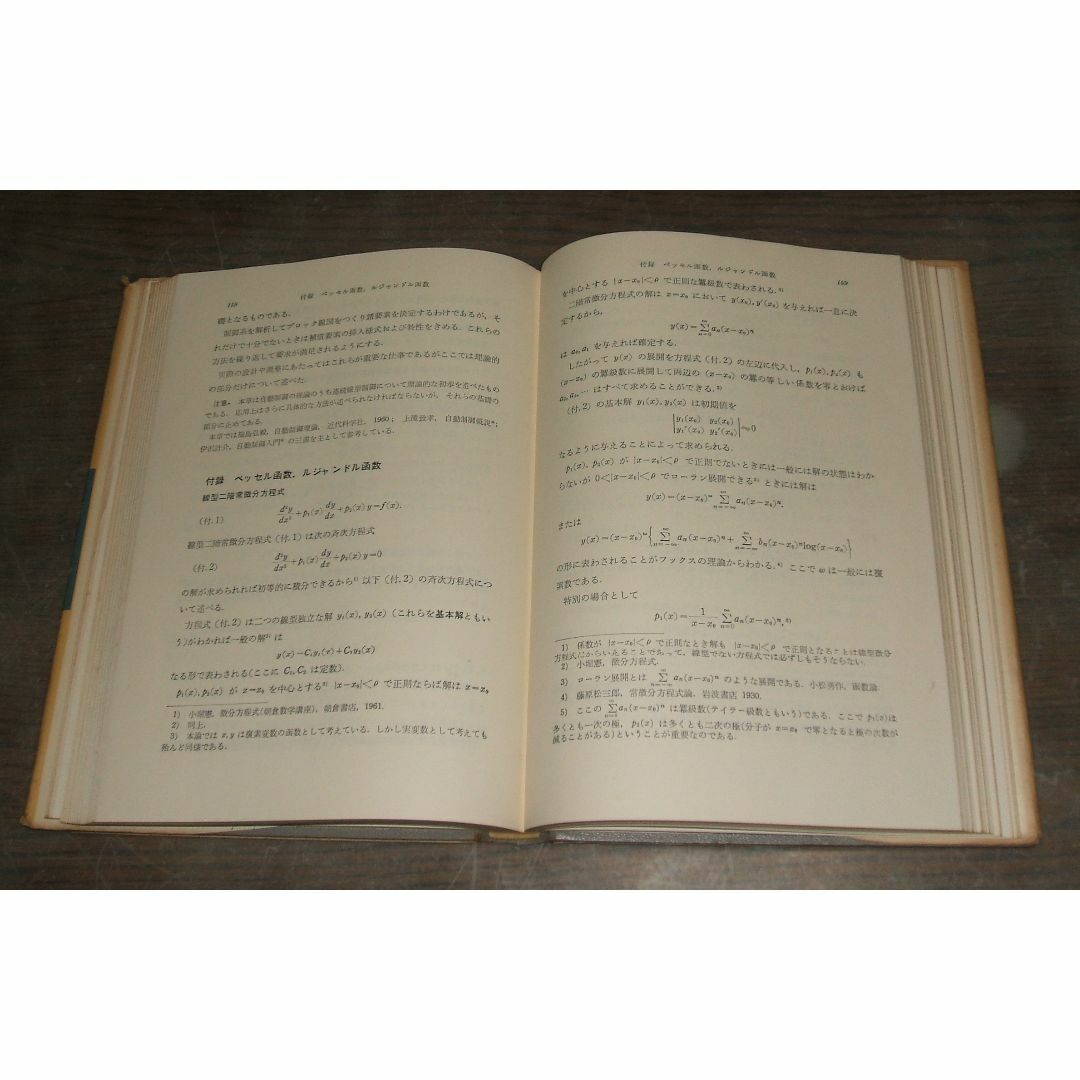 付録 ベッセル函数，ルジャンドル函数
礎となるものである．
制御系を解析してブロック線図をつくり諸要素を決定するわけであるが，そ
れだけで十分でないときは補償要素の挿入様式および特性をきめる．これらの
方法を繰り返して要求が満足されるようにする．
実際の設計や調整にあたってはこれらが重要な仕事であるがここでは理論的
の部分だけについて述べた．
注意． 本章は自動制御の理論のうち連続線型制御について理論的な初歩を述べたもの
である．応用上はさらに具体的な方法が述べられなければならないが，それらの基礎の
部分に止めてある．
自動制御理論，近代科学社，1960；
自動制御入門 の三書を主として参考している．
付録 ベッセル函数，ルジャンドル函数
線型二階常微分方程式
(付.1) d²y/dx² + p₁(x) dy/dx + p₂(x)y = f(x).
線型二階常微分方程式 (付.1) は次の斉次方程式
(付.2) d²y/dx² + p₁(x) dy/dx + p₂(x)y = 0
の解が求められれば初等的に積分できるから¹⁾ 以下 (付.2) の斉次方程式につ
いて述べる．
方程式 (付.2) は二つの線型独立な解 y₁(x), y₂(x) (これらを基本解ともい
う)がわかれば一般の解²⁾ は
y(x)=C₁y₁(x)+C₂y₂(x)
なる形で表わされる(ここに C₁, C₂ は定数).
p₁(x), p₂(x) が x=x₀ を中心とする³⁾ |x−x₀|<ρ で正則ならば解は x=x₀
1) 小堀憲，微分方程式(朝倉数学講座)，朝倉書店，1961.
2) 同上.
3) 本論では x, y は複素変数の函数として考えている．しかし実変数として考えても
殆んど同様である．
付録 ベッセル函数，ルジャンドル函数 159
を中心とする |x−x₀|<ρ で正則な羃級数で表わされる．¹⁾
二階常微分方程式の解は x=x₀ において y(x₀), y′(x₀) を与えれば一意に決
定するから，
y(x)=∑_{n=0}^{∞} aₙ(x−x₀)ⁿ
は a₀, a₁ を与えれば確定する．
したがって y(x) の展開を方程式 (付.2) の左辺に代入し，p₁(x), p₂(x) も
(x−x₀) の羃級数に展開して両辺の (x−x₀) の羃の等しい係数を零とおけば
a₂, a₃, … はすべて求めることができる．²⁾
(付.2) の基本解 y₁(x), y₂(x) は初期値を
|y₁(x₀) y₂(x₀)|
|y₁′(x₀) y₂′(x₀)| ≠0
なるように与えることによって求められる．
p₁(x), p₂(x) が |x−x₀|<ρ で正則でないときには一般には解の状態はわか
らないが 0<|x−x₀|<ρ でローラン展開できる³⁾ ときには解は
y(x)=(x−x₀)^ω ∑_{n=−∞}^{∞} aₙ(x−x₀)ⁿ
または
y(x)=(x−x₀)^ω {∑_{n=−∞}^{∞} aₙ(x−x₀)ⁿ + ∑_{n=−∞}^{∞} bₙ(x−x₀)ⁿ log(x−x₀)}
の形に表わされることがフックスの理論からわかる．⁴⁾ ここで ω は一般には複
素数である．
特別の場合として
p₁(x)= 1/(x−x₀) ∑_{n=0}^{∞} aₙ(x−x₀)ⁿ,⁵⁾
1) 係数が |x−x₀|<ρ で正則なとき解も |x−x₀|<ρ で正則となることは線型微分
方程式だからいえることであって，線型でない方程式では必ずしもそうならない．
2) 小堀憲，微分方程式.
3) ローラン展開とは ∑_{n=−∞}^{∞} aₙ(x−x₀)ⁿ のような展開である．小松勇作，函数論.
4) 藤原松三郎，常微分方程式論，岩波書店 1930.
5) ここの ∑_{n=0}^{∞} aₙ(x−x₀)ⁿ は羃級数(テイラー級数ともいう)である．ここで p₁(x)は
多くとも一次の極，p₂(x) は多くとも二次の極(分子が x=x₀ で零となると極の次数が
減ることがある)ということが重要なのである．